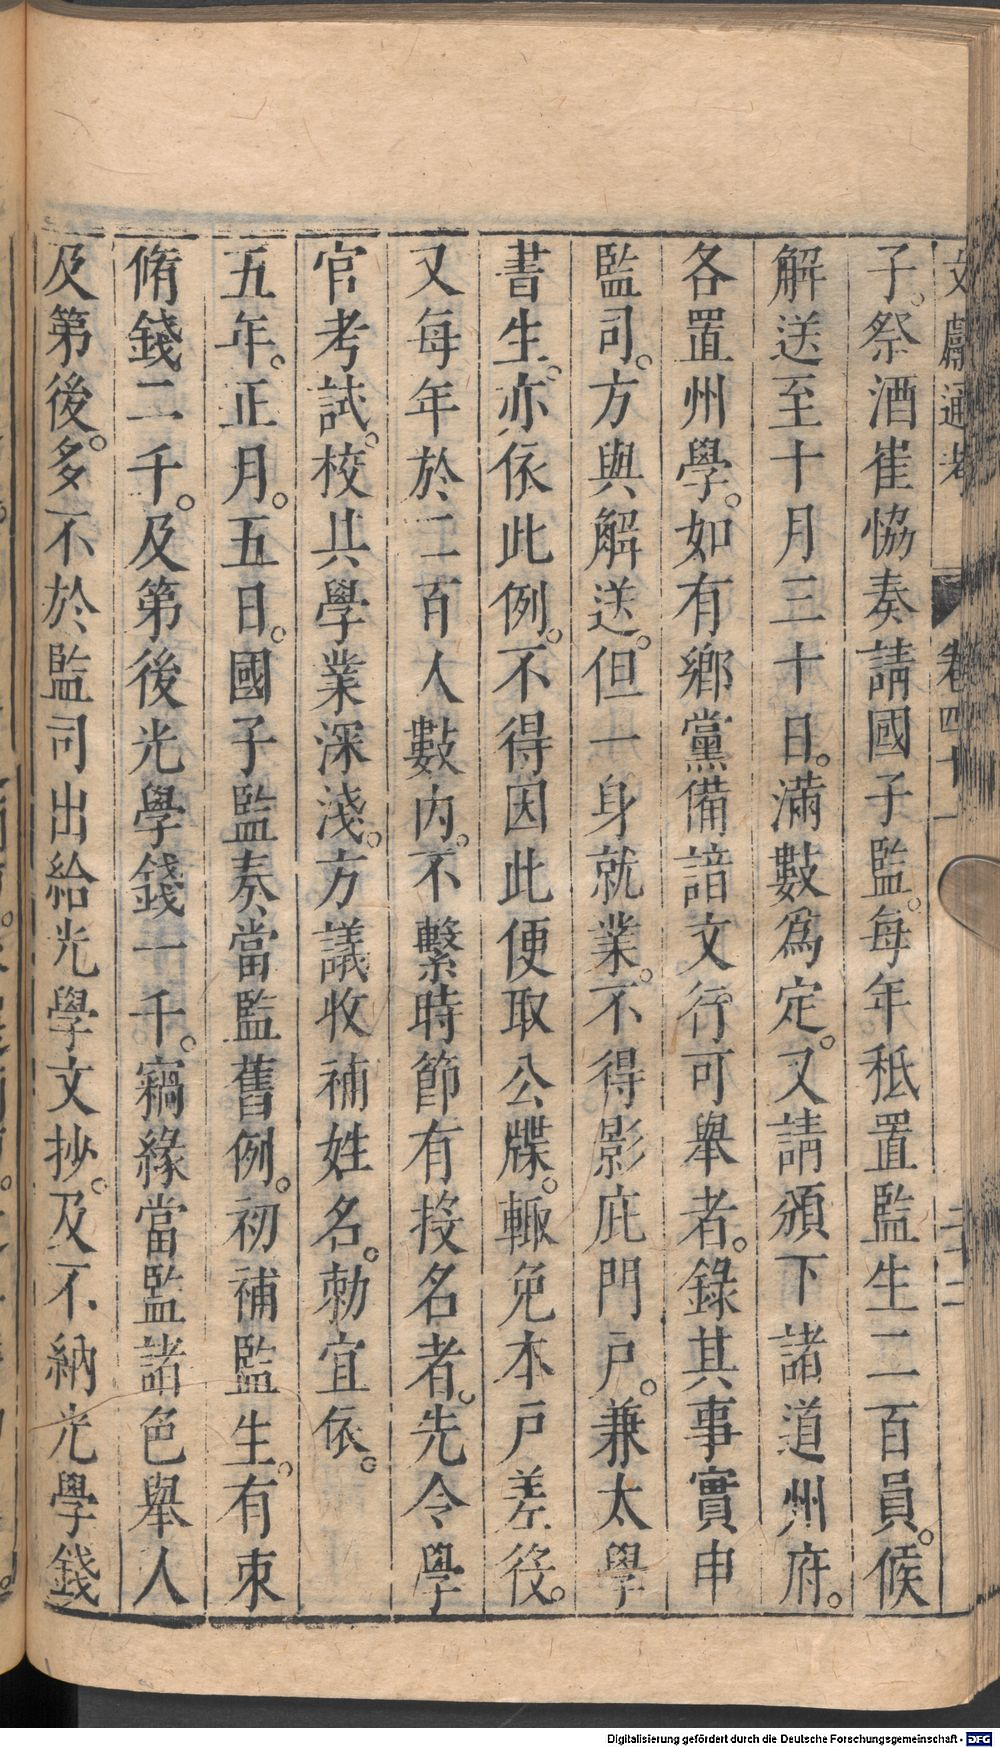 文獻通考 卷四十一 二十二
子。祭酒崔恊奏請國子監。每年秪置監生二百員。候
解送至十月三十日。滿數爲定。又請頒下諸道州府。
各置州學。如有鄉黨備諳文行可舉者。錄其事實申
監司。方與解送。但一身就業。不得影庇門戶。兼太學
書生。亦依此例。不得因此便取公牒。輒免本戶差役。
又每年於二百人數内。不繫時節有投名者。先令學
官考試。校其學業深淺。方議收補姓名。勅宜依。
五年。正月。五日。國子監奏。當監舊例。初補監生。有束
脩錢二千。及第後光學錢一千。竊緣當監諸色舉人
及第後。多不於監司出給光學文抄。及不納光學錢
Digitalisierung gefördert durch die Deutsche Forschungsgemeinschaft - DFG